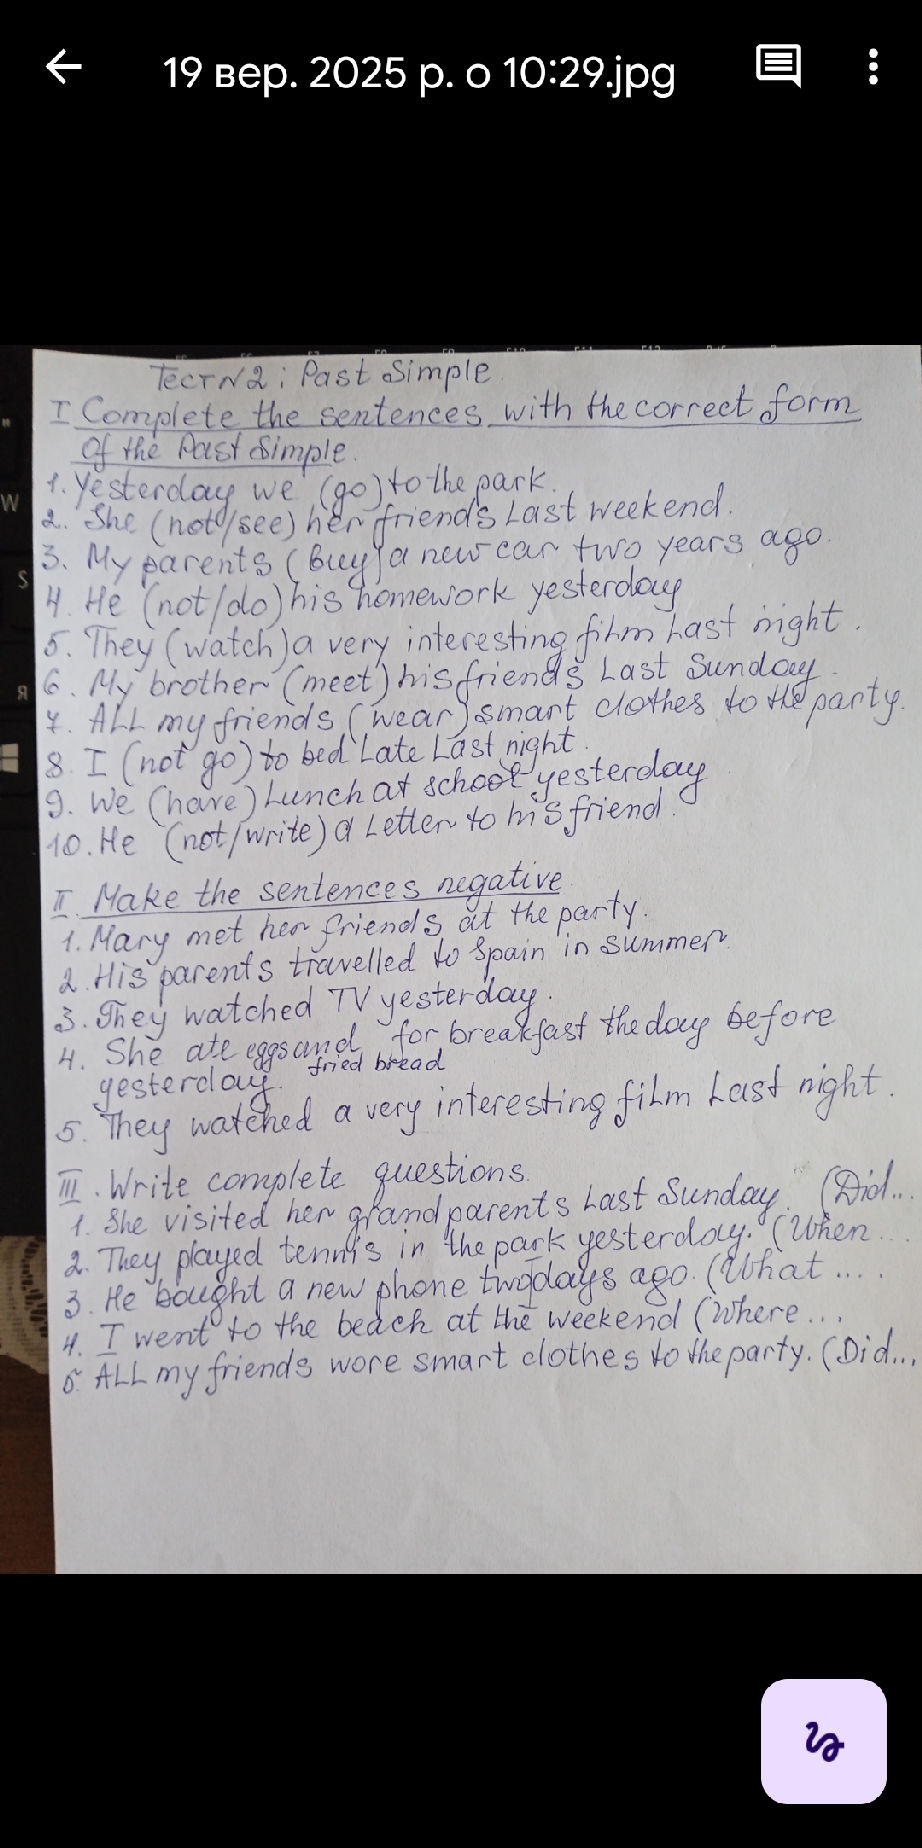 19 вер. 2025 р. о 10:29.jpg
Тест N2: Past Simple
I Complete the sentences with the correct form
Of the Past Simple.
1. Yesterday we (go) to the park.
2. She (not/see) her friends Last weekend.
3. My parents (buy) a new car two years ago.
4. He (not/do) his homework yesterday
5. They (watch) a very interesting film Last night.
6. My brother (meet) his friends Last Sunday.
7. ALL my friends (wear) smart clothes to the party.
8. I (not go) to bed Late Last night.
9. We (have) Lunch at school yesterday
10. He (not/write) a Letter to his friend.
II. Make the sentences negative
1. Mary met her friends at the party.
2. His parents travelled to Spain in summer.
3. They watched TV yesterday.
4. She ate eggs and fried bread for breakfast the day before
yesterday.
5. They watched a very interesting film Last night.
III. Write complete questions.
1. She visited her grandparents Last Sunday. (Did...
2. They played tennis in the park yesterday. (When...
3. He bought a new phone two days ago. (What....
4. I went to the beach at the weekend (Where...
5. ALL my friends wore smart clothes to the party. (Did...